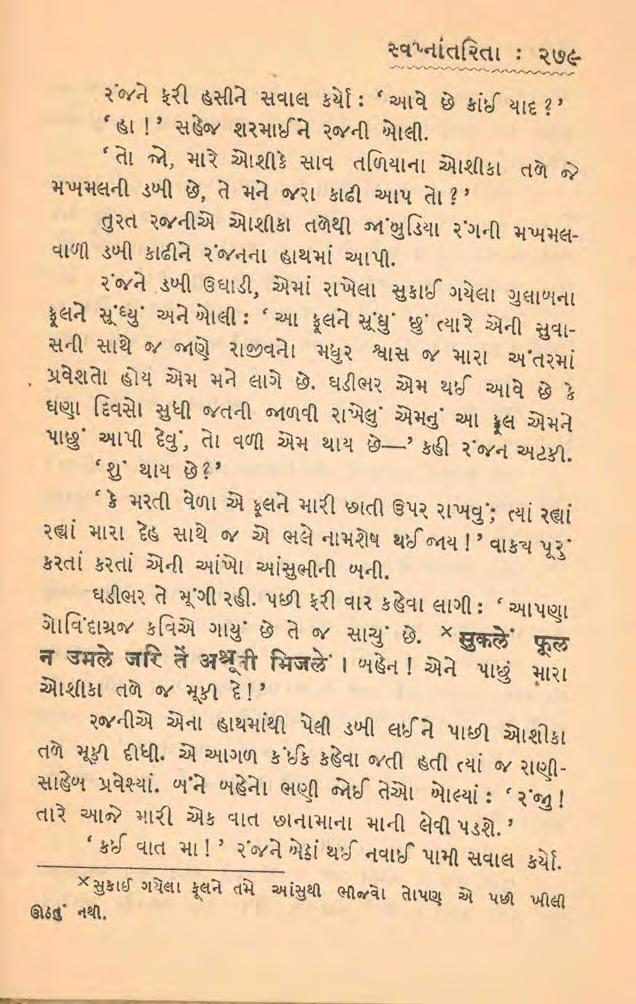 સ્વપ્નાંતરિતા : ૨૭૯
રંજને ફરી હસીને સવાલ કર્યો: ‘ આવે છે કાંઈ યાદ ? ’
‘ હા ! ’ સહેજ શરમાઈને રજની બોલી.
‘ તો જો, મારે ઓશીકે સાવ તળિયાના ઓશીકા તળે જે
મખમલની ડબી છે, તે મને જરા કાઢી આપ તો ? ’
તુરત રજનીએ ઓશીકા તળેથી જાંબુડિયા રંગની મખમલ-
વાળી ડબી કાઢીને રંજનના હાથમાં આપી.
રંજને ડબી ઉઘાડી, એમાં રાખેલા સુકાઈ ગયેલા ગુલાબના
ફૂલને સૂંઘ્યું અને બોલી : ‘ આ ફૂલને સૂંઘું છું ત્યારે એની સુવા-
સની સાથે જ જાણે રાજીવનો મધુર શ્વાસ જ મારા અંતરમાં
પ્રવેશતો હોય એમ મને લાગે છે. ઘડીભર એમ થઈ આવે છે કે
ઘણા દિવસો સુધી જતની જાળવી રાખેલું એમનું આ ફૂલ એમને
પાછું આપી દેવું, તો વળી એમ થાય છે—’ કહી રંજન અટકી.
‘ શું થાય છે? ’
‘ કે મરતી વેળા એ ફૂલને મારી છાતી ઉપર રાખવું; ત્યાં રહ્યાં
રહ્યાં મારા દેહ સાથે જ એ ભલે નામશેષ થઈ જાય ! ’ વાક્ય પૂરું
કરતાં કરતાં એની આંખો આંસુભીની બની.
ઘડીભર તે મૂંગી રહી. પછી ફરી વાર કહેવા લાગી : ‘ આપણા
ગોવિંદાગ્રજ કવિએ ગાયું છે તે જ સાચું છે. ×सुकलें फूल
न उमले जरि तें अश्रूंनी भिजलें । બહેન ! એને પાછું મારા
ઓશીકા તળે જ મૂકી દે ! ’
રજનીએ એના હાથમાંથી પેલી ડબી લઈને પાછી ઓશીકા
તળે મૂકી દીધી. એ આગળ કંઈક કહેવા જતી હતી ત્યાં જ રાણી-
સાહેબ પ્રવેશ્યાં. બંને બહેનો ભણી જોઈ તેઓ બોલ્યાં : ‘ રંજુ !
તારે આજે મારી એક વાત છાનામાના માની લેવી પડશે. ’
‘ કઈ વાત મા ! ’ રંજને બેઠાં થઈ નવાઈ પામી સવાલ કર્યો.
×સુકાઈ ગયેલા ફૂલને તમે આંસુથી ભીજવો તોપણ એ પછી ખીલી
ઊઠતું નથી.